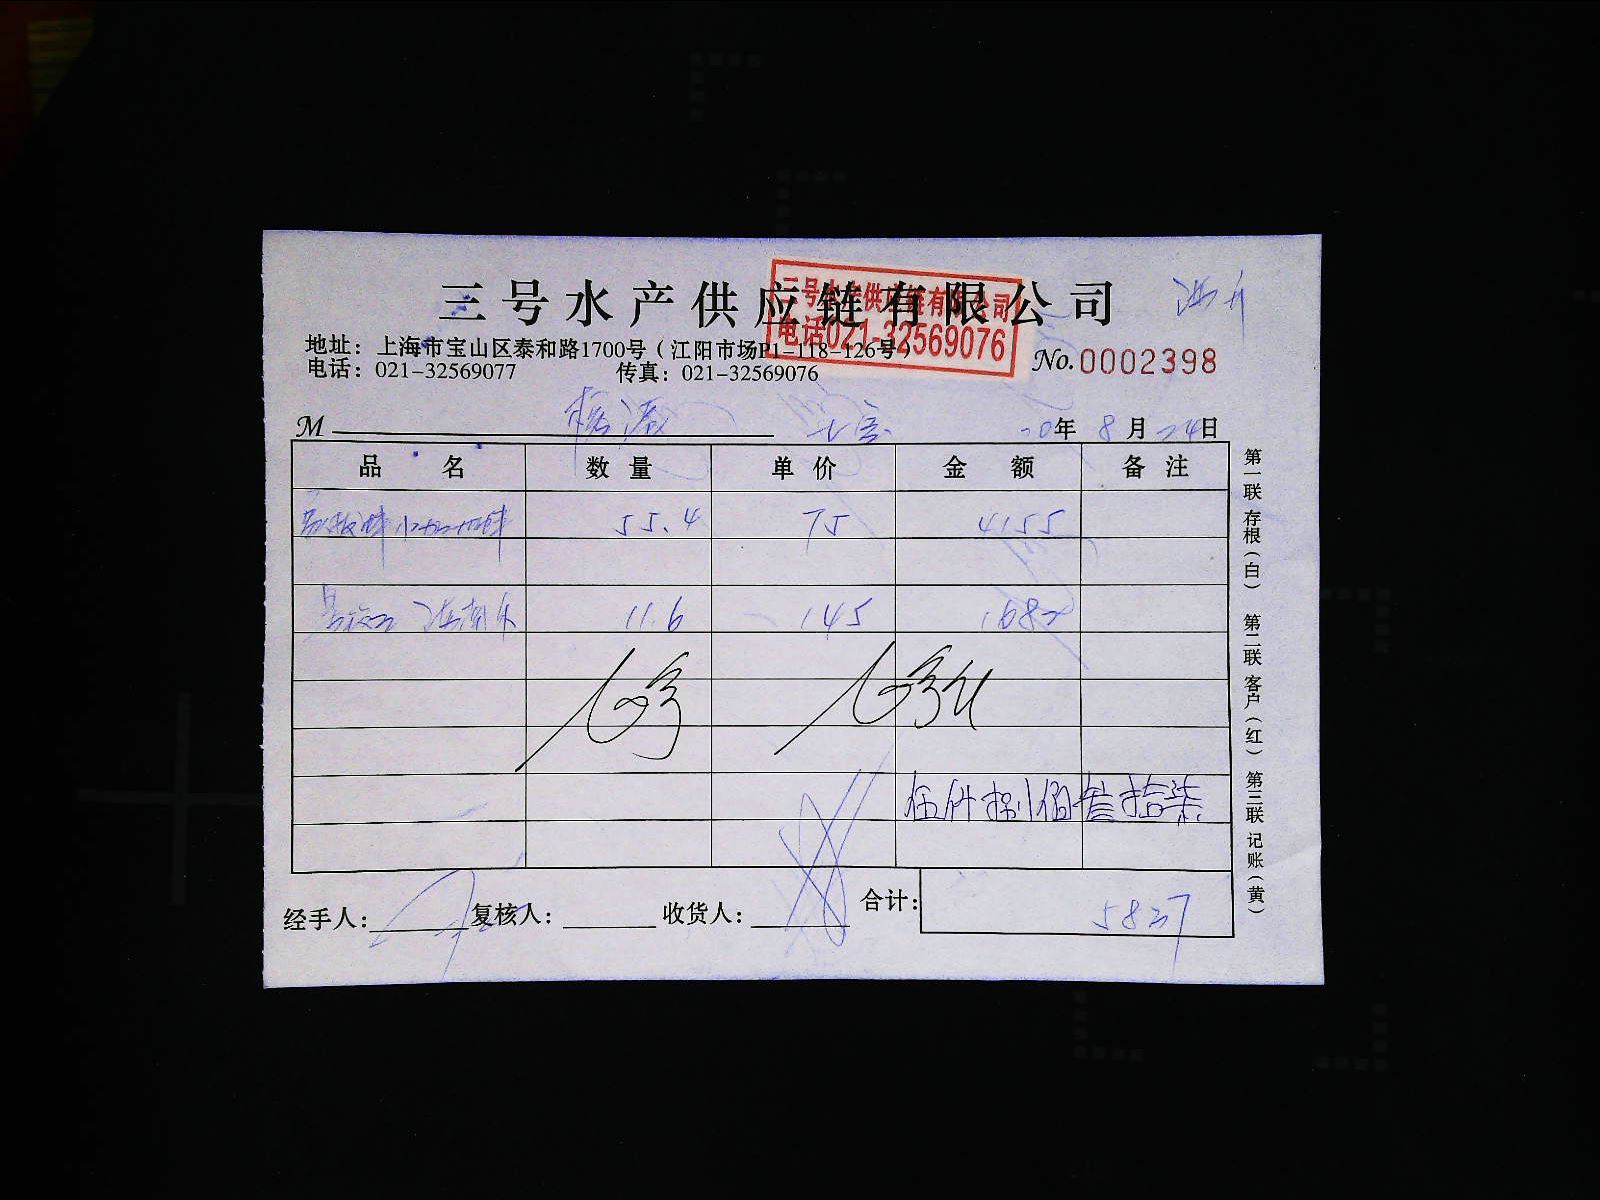 三号水产供应链有限公司
三号水产供应链有限公司
电话021-32569076
地址：上海市宝山区泰和路1700号（江阳市场P1-118-126号）
No.0002398
电话：021-32569077 传真：021-32569076
M 20年 8月 24日
品名 数量 单价 金额 备注
55.4 75 4155
11.6 145 1682
伍仟捌佰叁拾柒
经手人： 复核人： 收货人： 合计： 5837
第一联 存根（白） 第二联 客户（红） 第三联 记账（黄）